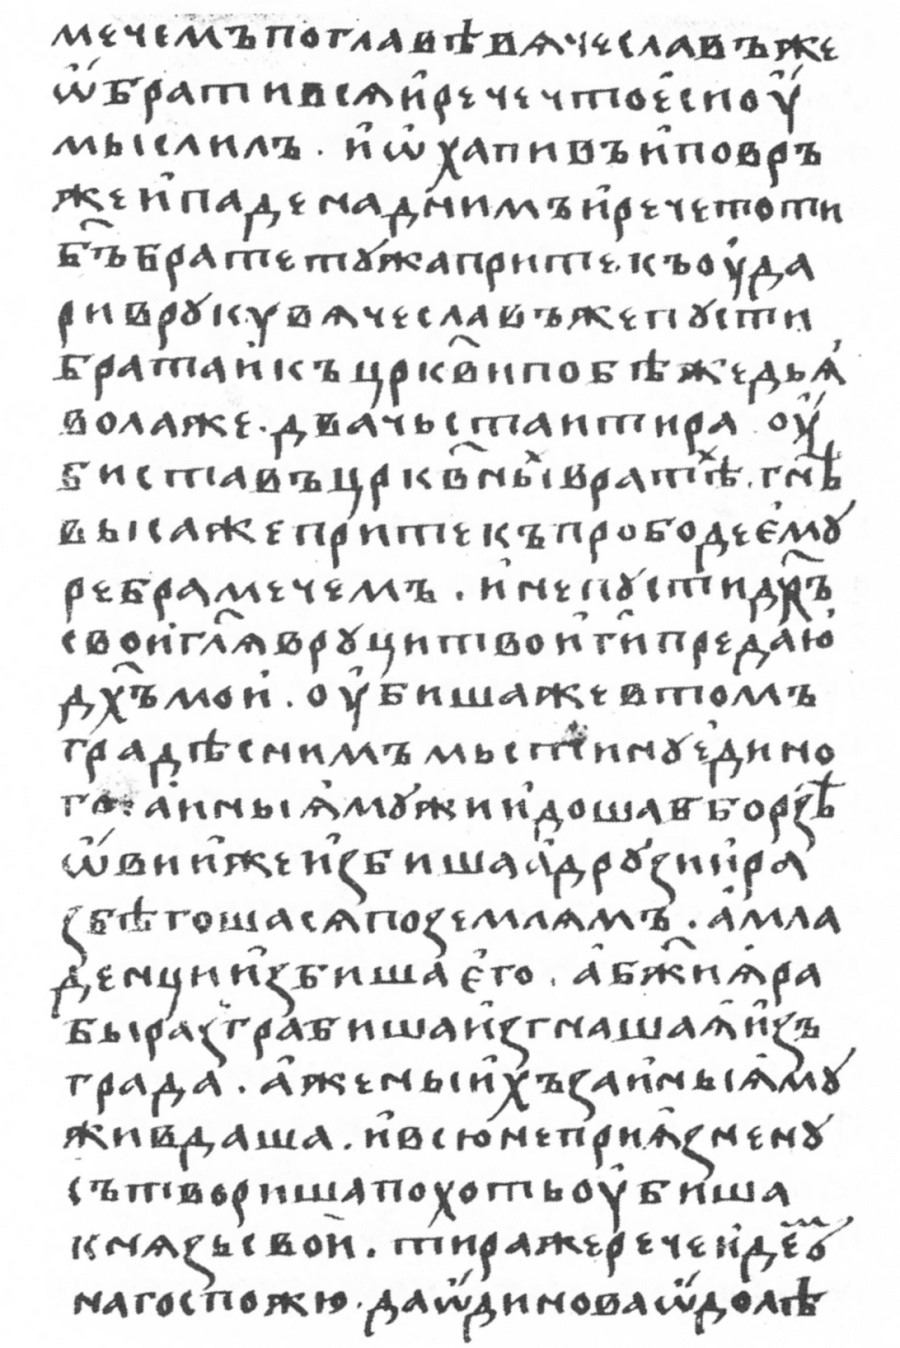 мечемъпоглавѣвꙗчеславъже
ѿбративсѧи҆речечтоє҆сиоу҆
мыслилъ · и҆ѡхапивъи҆повръ
жеи҆паденаднимъи҆речетоти
бъ҃братетꙋжапритекъоу҆да
риврꙋкꙋвѧчеславъжепꙋсти
братаи҆къцркв҃ипобѣжедьꙗ҆
волаже·двачьстаитира оу҆
биставъцркв҃ныⷯвратѣⷯ·гнѣ
высажепритекъпрободеє҆мꙋ
ребрамечемъ · и҆непꙋстидх҃ъ
свои҆гл҃ѧврꙋцитвои҆ги҃предаю҆
дх҃ъмои҆ · оу҆бишажевтомъ
градѣснимъмьстинꙋє҆дино
го · а҆иныꙗ҆мꙋжии҆дошавборзѣ
ѿвии҆жеи҆збишаа҆дрꙋзиира
збѣгошасѧпоземлѧмъ · а҆мла
денции҆збишає҆го · а҆бж҃иꙗ҆ра
быразграбишаи҆згнашаꙗ҆и҆зъ
града · а҆женыи҆хъзаиныꙗ҆мꙋ
живдаша · и҆всюнеприꙗ҆зненꙋ
сътворишапохотьоу҆биша
кнѧзьсвои҆ · тиражеречеи҆деⷨꙋ
нагоспожю · даѿдиноваѿдолѣ